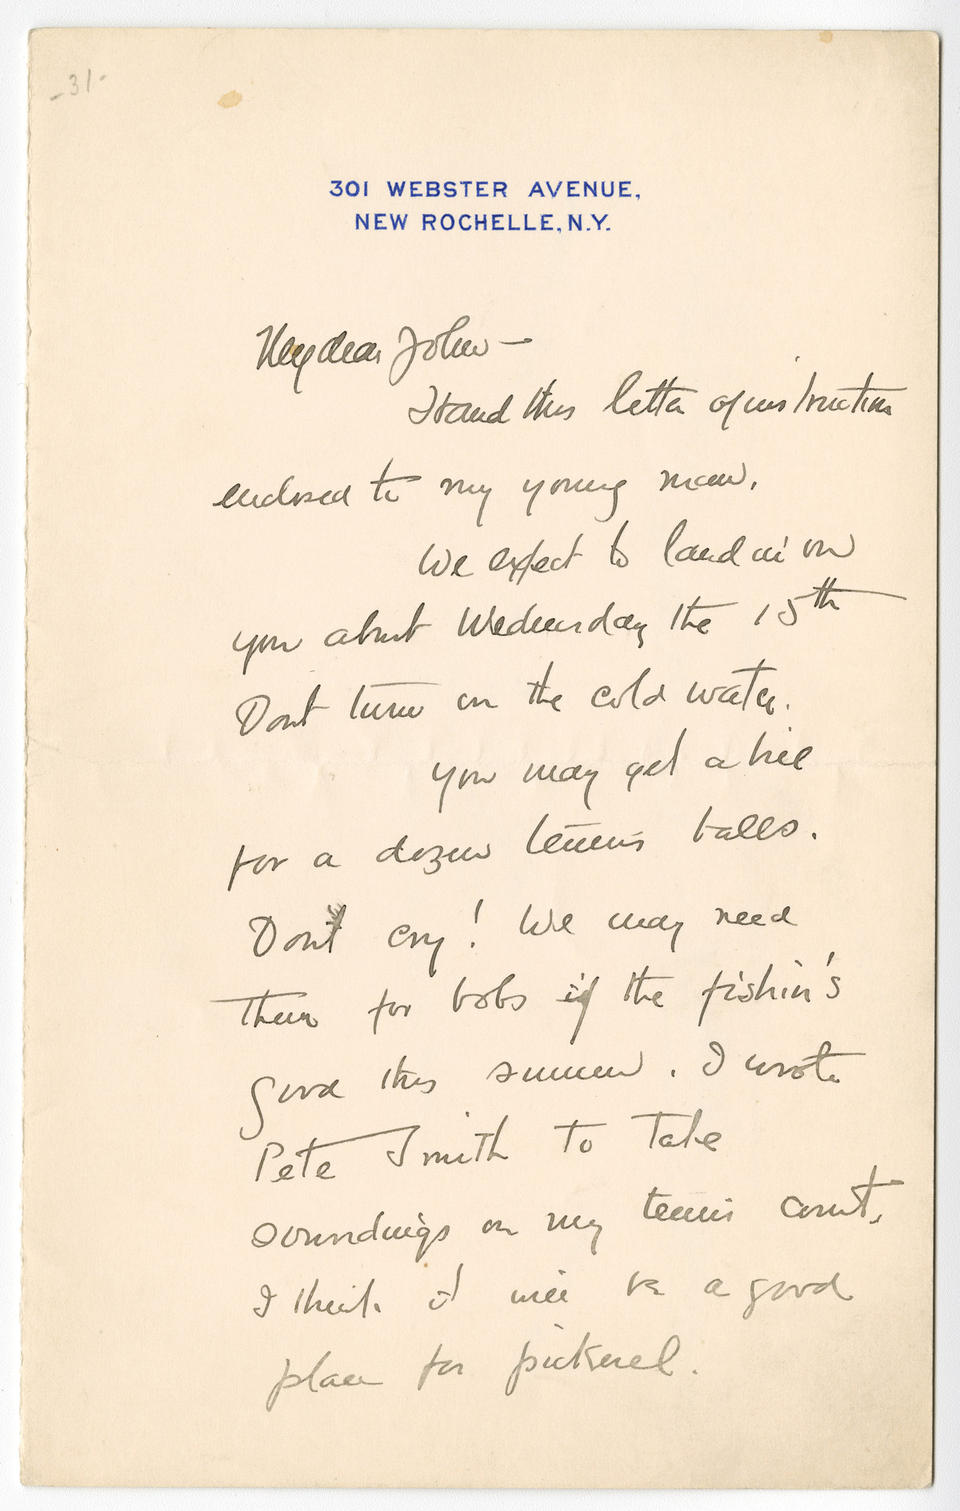 -31-
301 WEBSTER AVENUE,
NEW ROCHELLE, N.Y.
My dear John —
Hand this letter of instruction
enclosed to my young man.
We expect to land in on
you about Wednesday the 15th
Dont turn on the cold water.
You may get a bill
for a dozen tennis balls.
Don't cry! We may need
them for bobs if the fishin's
good this summer. I wrote
Pete Smith to take
soundings on my tennis court.
I think it will be a good
place for pickerel.